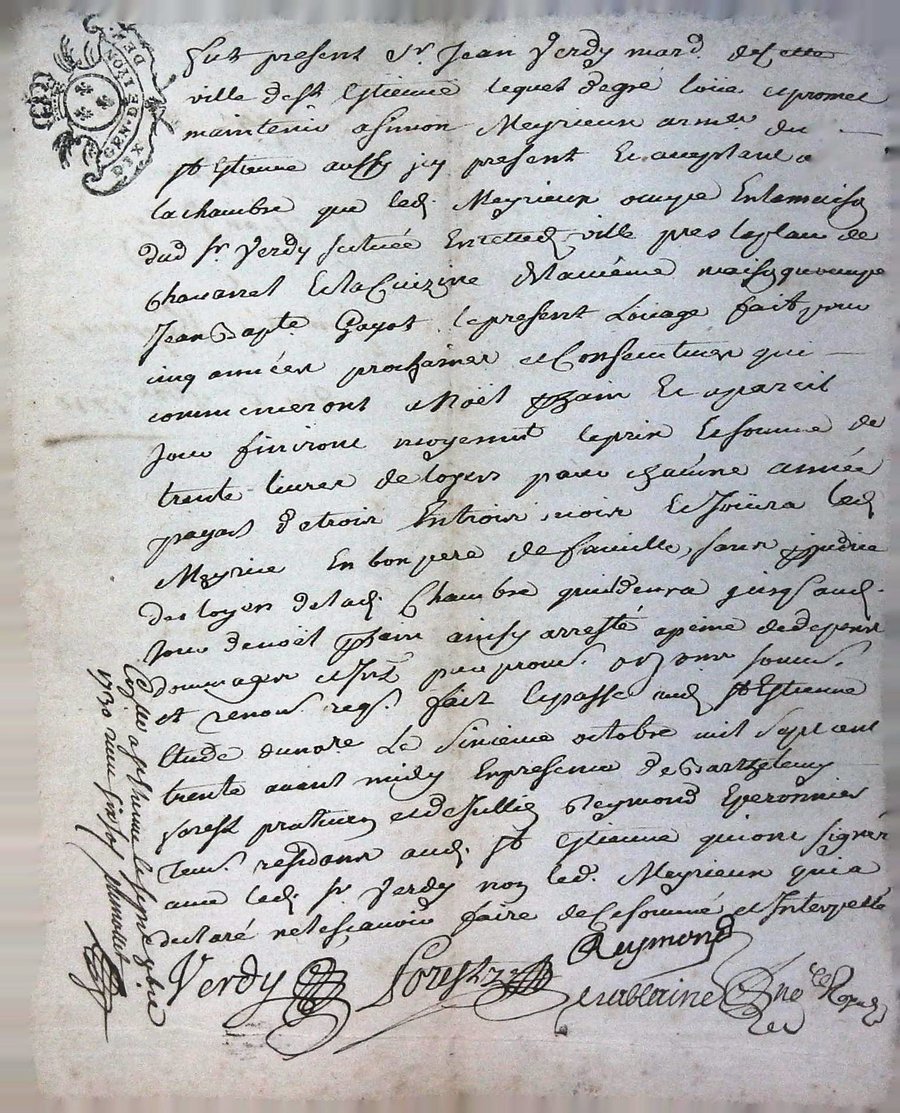 GEN. DE LYON DE
DIX
Fut present Sr. Jean Verdy mard. de Cette
ville de St Etienne lequel de gré loüe et promet
maintenir a Simon Meyrieux armer. du
St Etienne aussy icy present Et acceptant
la chambre que led. Meyrieux occupe En la maison
dud Sr. Verdy scituée En cette d. ville pres la place de
Chavanel Et la Cuizine de la mème maison qu'occupe
Jean Bapte. Gayot le present Loüage fait pour
cinq années prochaines et Consecutives qui
commenceront a Noël pchain Et a pareil
jour finiront moyennt le prix Et somme de
trente livres de loyers pour chacune année
payable de trois En trois mois Et Joüira led
Meyrieu En bon pere de famille, sans prejudice
des loyers de lad. Chambre qu'il devra jusq'aud.
jour de noël pchain ainsy arresté a peine de depens
dommages et Intts par promes. obons soumis.
et renons reqs. fait Et passé aud St Etienne
Etude du nore. Le sixieme octobre mil sept cent
trente avant midy En presence de Barthelemy
Forest praticien et de Jullien Reymond Eperonnier
tems. residans aud. St Etienne qui ont signé
avec led. Sr. Verdy non led. Meyrieux qui a
declaré ne le scavoir faire de Ce sommé et Interpellé
Verdy Forest Reymond
nore Royal
a St Etienne le sept 8bre
1730 reçu six sols